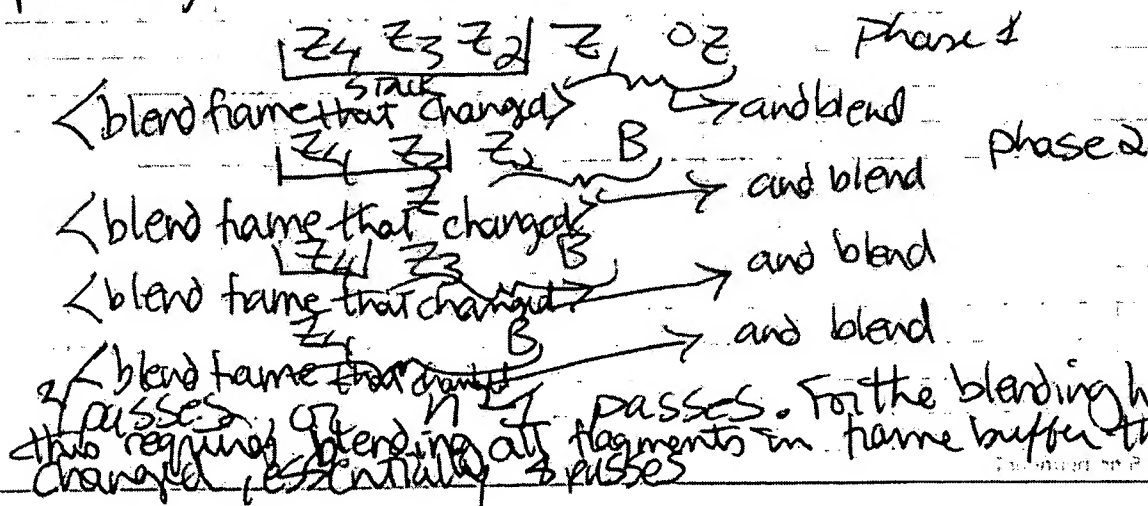 Z4 Z3 Z2 Z1 OZ phase 1
STACK
<blend frame that changed> and blend
Z4 Z3 Z2 B phase 2
<blend frame that changed> and blend
Z4 Z3 B
<blend frame that changed and blend
Z4 B
<blend frame that changed and blend
passes or passes. For the blending
this requires blending all fragments in frame buffer
changed, essentially 8 passes